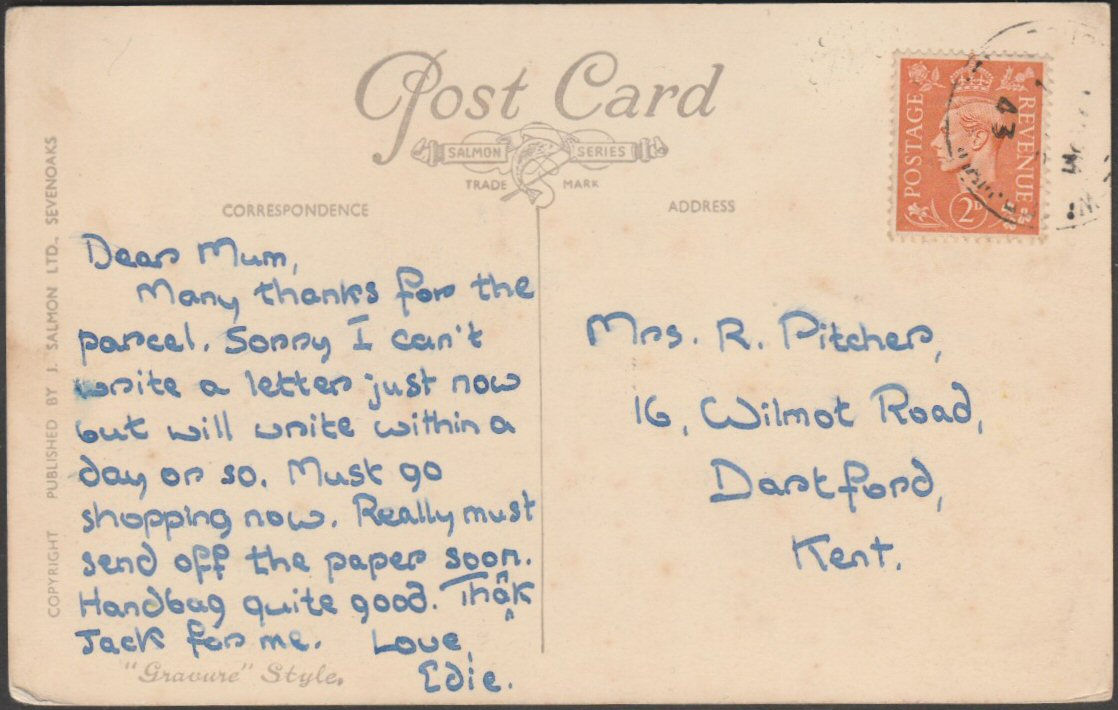 Post Card
SALMON SERIES
TRADE MARK
CORRESPONDENCE
ADDRESS
POSTAGE
REVENUE
2D
43
COPYRIGHT PUBLISHED BY J. SALMON LTD., SEVENOAKS
Dear Mum,
Many thanks for the
parcel. Sorry I can't
write a letter just now
but will write within a
day or so. Must go
shopping now. Really must
send off the paper soon.
Handbag quite good.
Jack for me. Love,
Edie.
"Gravure" Style.
Mrs. R. Pitcher,
16, Wilmot Road,
Dartford,
Kent.